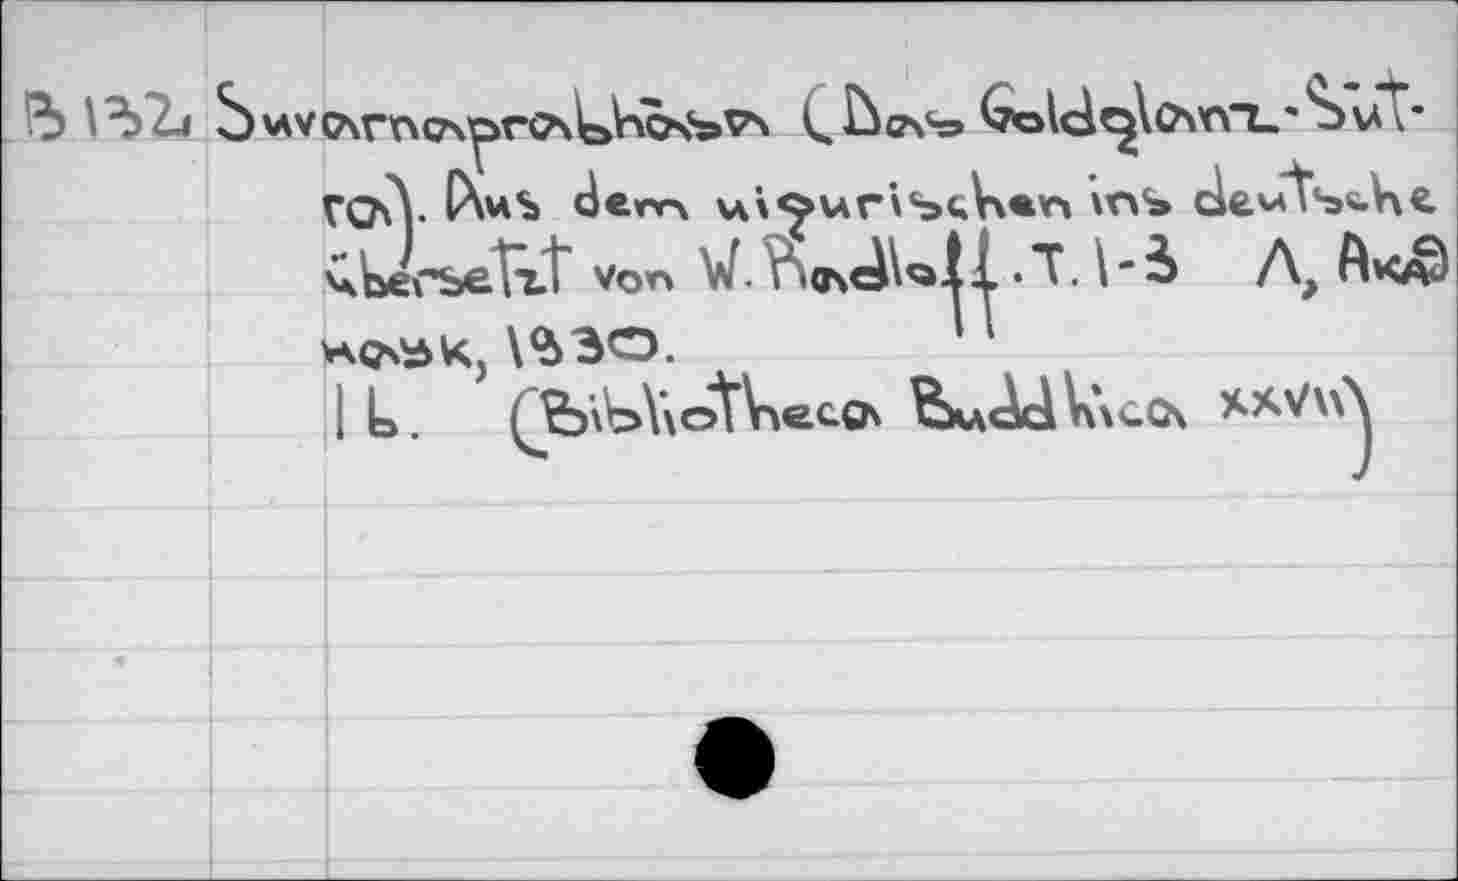 В 1321 Suvarnaprabhāsa (Das Goldglanz-Sūt-
ra). Aus dem uigurischen ins deutsche
übersetzt von W. Radloff. Т. 1-3 Л, АкаД
наук, 1930.
1 Ь. (Bibliotheca Buddhica XXVII)